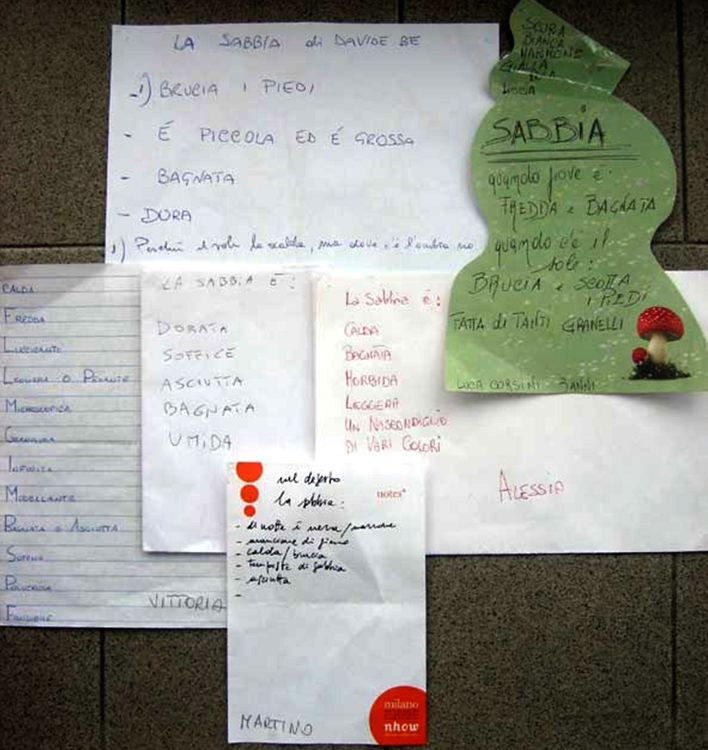 LA SABBIA di DAVIDE BE
-1) BRUCIA I PIEDI
- É PICCOLA ED É GROSSA
- BAGNATA
- DORA
1) Perchè il sole la scalda, ma dove c'è l'ombra no
SCURA
BIANCA
MARRONE
GIALLA
SABBIA
quando piove è:
FREDDA e BAGNATA
quando c'è il
sole:
BRUCIA e SCOTTA
I PIEDI
FATTA di TANTI GRANELLI
LUCA CORSINI 3 ANNI
CALDA
FREDDA
LUCCICANTE
LEGGERA O PESANTE
MICROSCOPICA
GRANULOSA
INFINITA
MODELLANTE
BAGNATA O ASCIUTTA
SOFFICE
POLVEROSA
VITTORIA
LA SABBIA È:
DORATA
SOFFICE
ASCIUTTA
BAGNATA
UMIDA
La Sabbia è:
CALDA
BAGNATA
MORBIDA
LEGGERA
UN NASCONDIGLIO
DI VARI COLORI
ALESSIA
nel deserto
la sabbia:
notes
- di notte è nera/marrone
- arancione di giorno
- calda/brucia
- tempeste di sabbia
- asciutta
-
MARTINO
milano
nhow